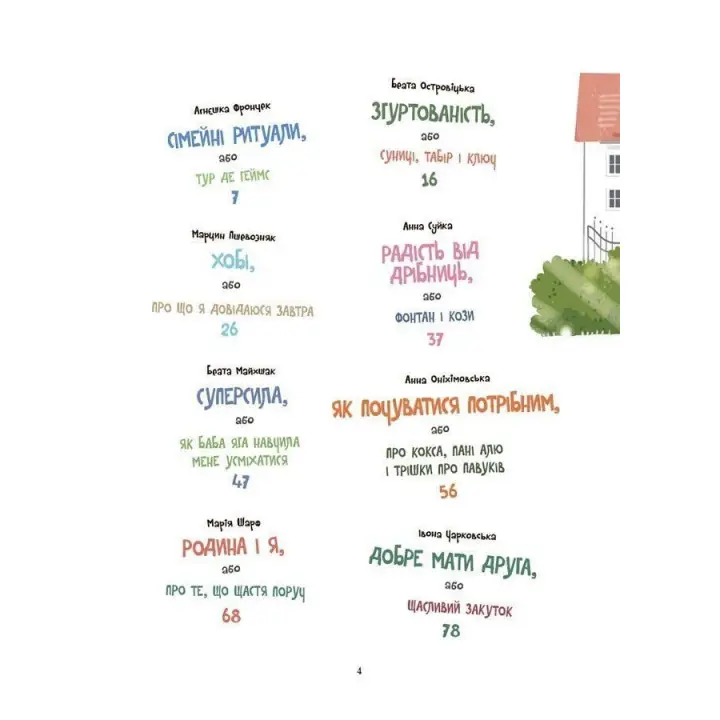 Аґнєшка Фрончек
СІМЕЙНІ РИТУАЛИ,
або
ТУР ДЕ ГЕЙМС
7
Беата Островіцька
ЗГУРТОВАНІСТЬ,
або
СУНИЦІ, ТАБІР І КЛЮЧ
16
Марцин Пшевозняк
ХОБІ,
або
ПРО ЩО Я ДОВІДАЮСЯ ЗАВТРА
26
Анна Суйка
РАДІСТЬ ВІД
ДРІБНИЦЬ,
або
ФОНТАН І КОЗИ
37
Беата Майхшак
СУПЕРСИЛА,
або
ЯК БАБА ЯГА НАВЧИЛА
МЕНЕ УСМІХАТИСЯ
47
Анна Оніхімовська
ЯК ПОЧУВАТИСЯ ПОТРІБНИМ,
або
ПРО КОКСА, ПАНІ АЛЮ
І ТРІШКИ ПРО ПАВУКІВ
56
Марія Шаро
РОДИНА І Я,
або
ПРО ТЕ, ЩО ЩАСТЯ ПОРУЧ
68
Івона Чарковська
ДОБРЕ МАТИ ДРУГА,
або
ЩАСЛИВИЙ ЗАКУТОК
78
4